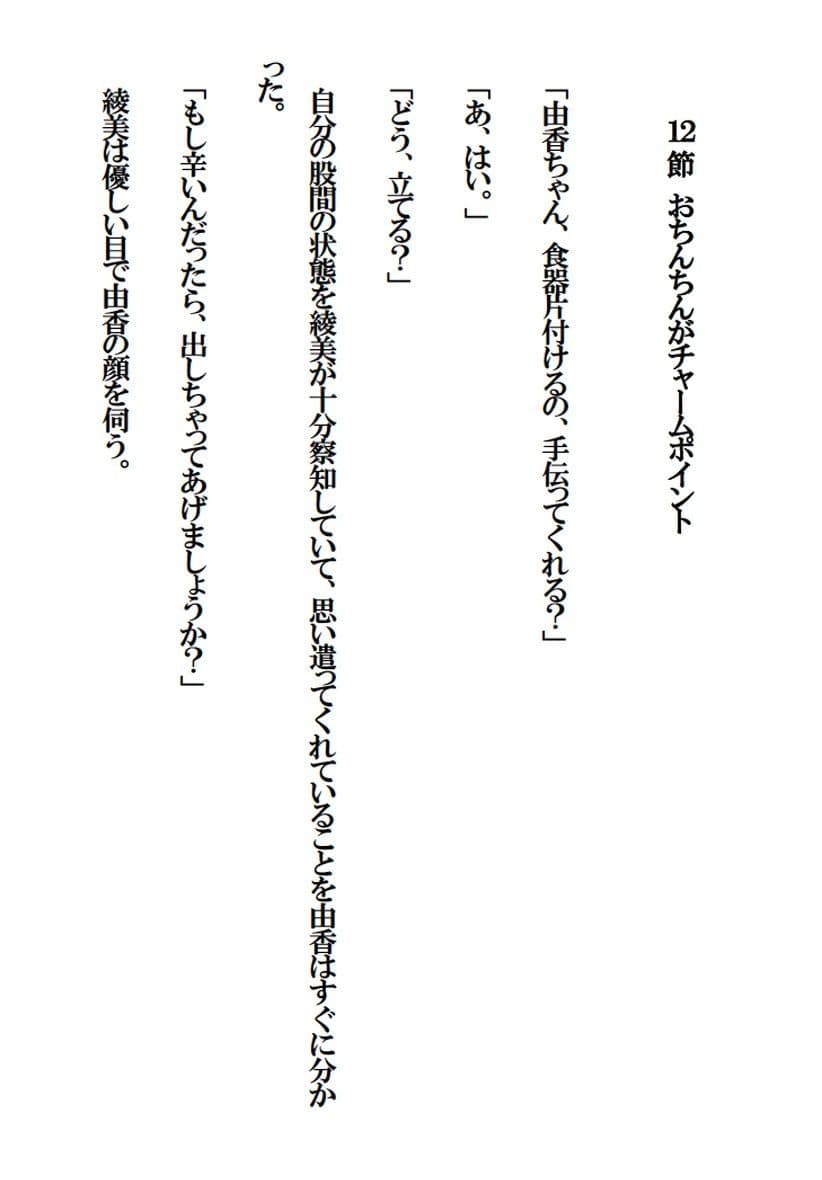 12節 おちんちんがチャームポイント
「由香ちゃん、食器片付けるの、手伝ってくれる？」
「あ、はい。」
「どう、立てる？」
自分の股間の状態を綾美が十分察知していて、思い遣ってくれていることを由香はすぐに分か
った。
「もし辛いんだったら、出しちゃってあげましょうか？」
綾美は優しい目で由香の顔を伺う。